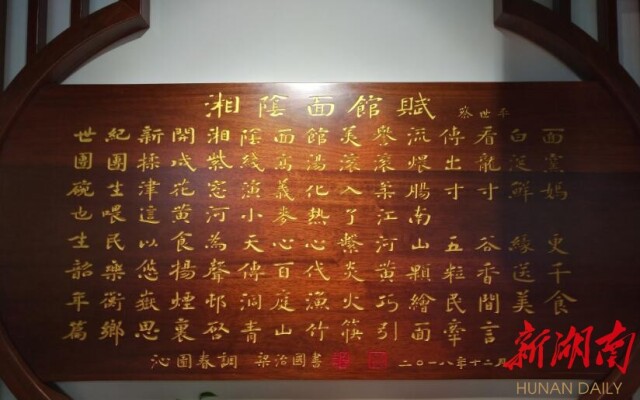 湘陰面館賦 蔡世平
世紀新開湘陰面館美譽流傳看白面
團團揉成紫綫高湯滾滾煨出龍涎
碗生津花窓漁義化入柔腸寸寸鮮媽
也喂這黄河小麥熱了江南
生民以食為天心心繫河山五谷緣更
韶樂悠揚聲傳百代炎黄顆粒香送千
年衡嶽煙邨洞庭漁火巧繪民間美食
篇鄉思裏啓青山竹筷引面牽言
沁園春調 梁治國書 二〇一八年十二月
新湖南
HUNAN DAILY